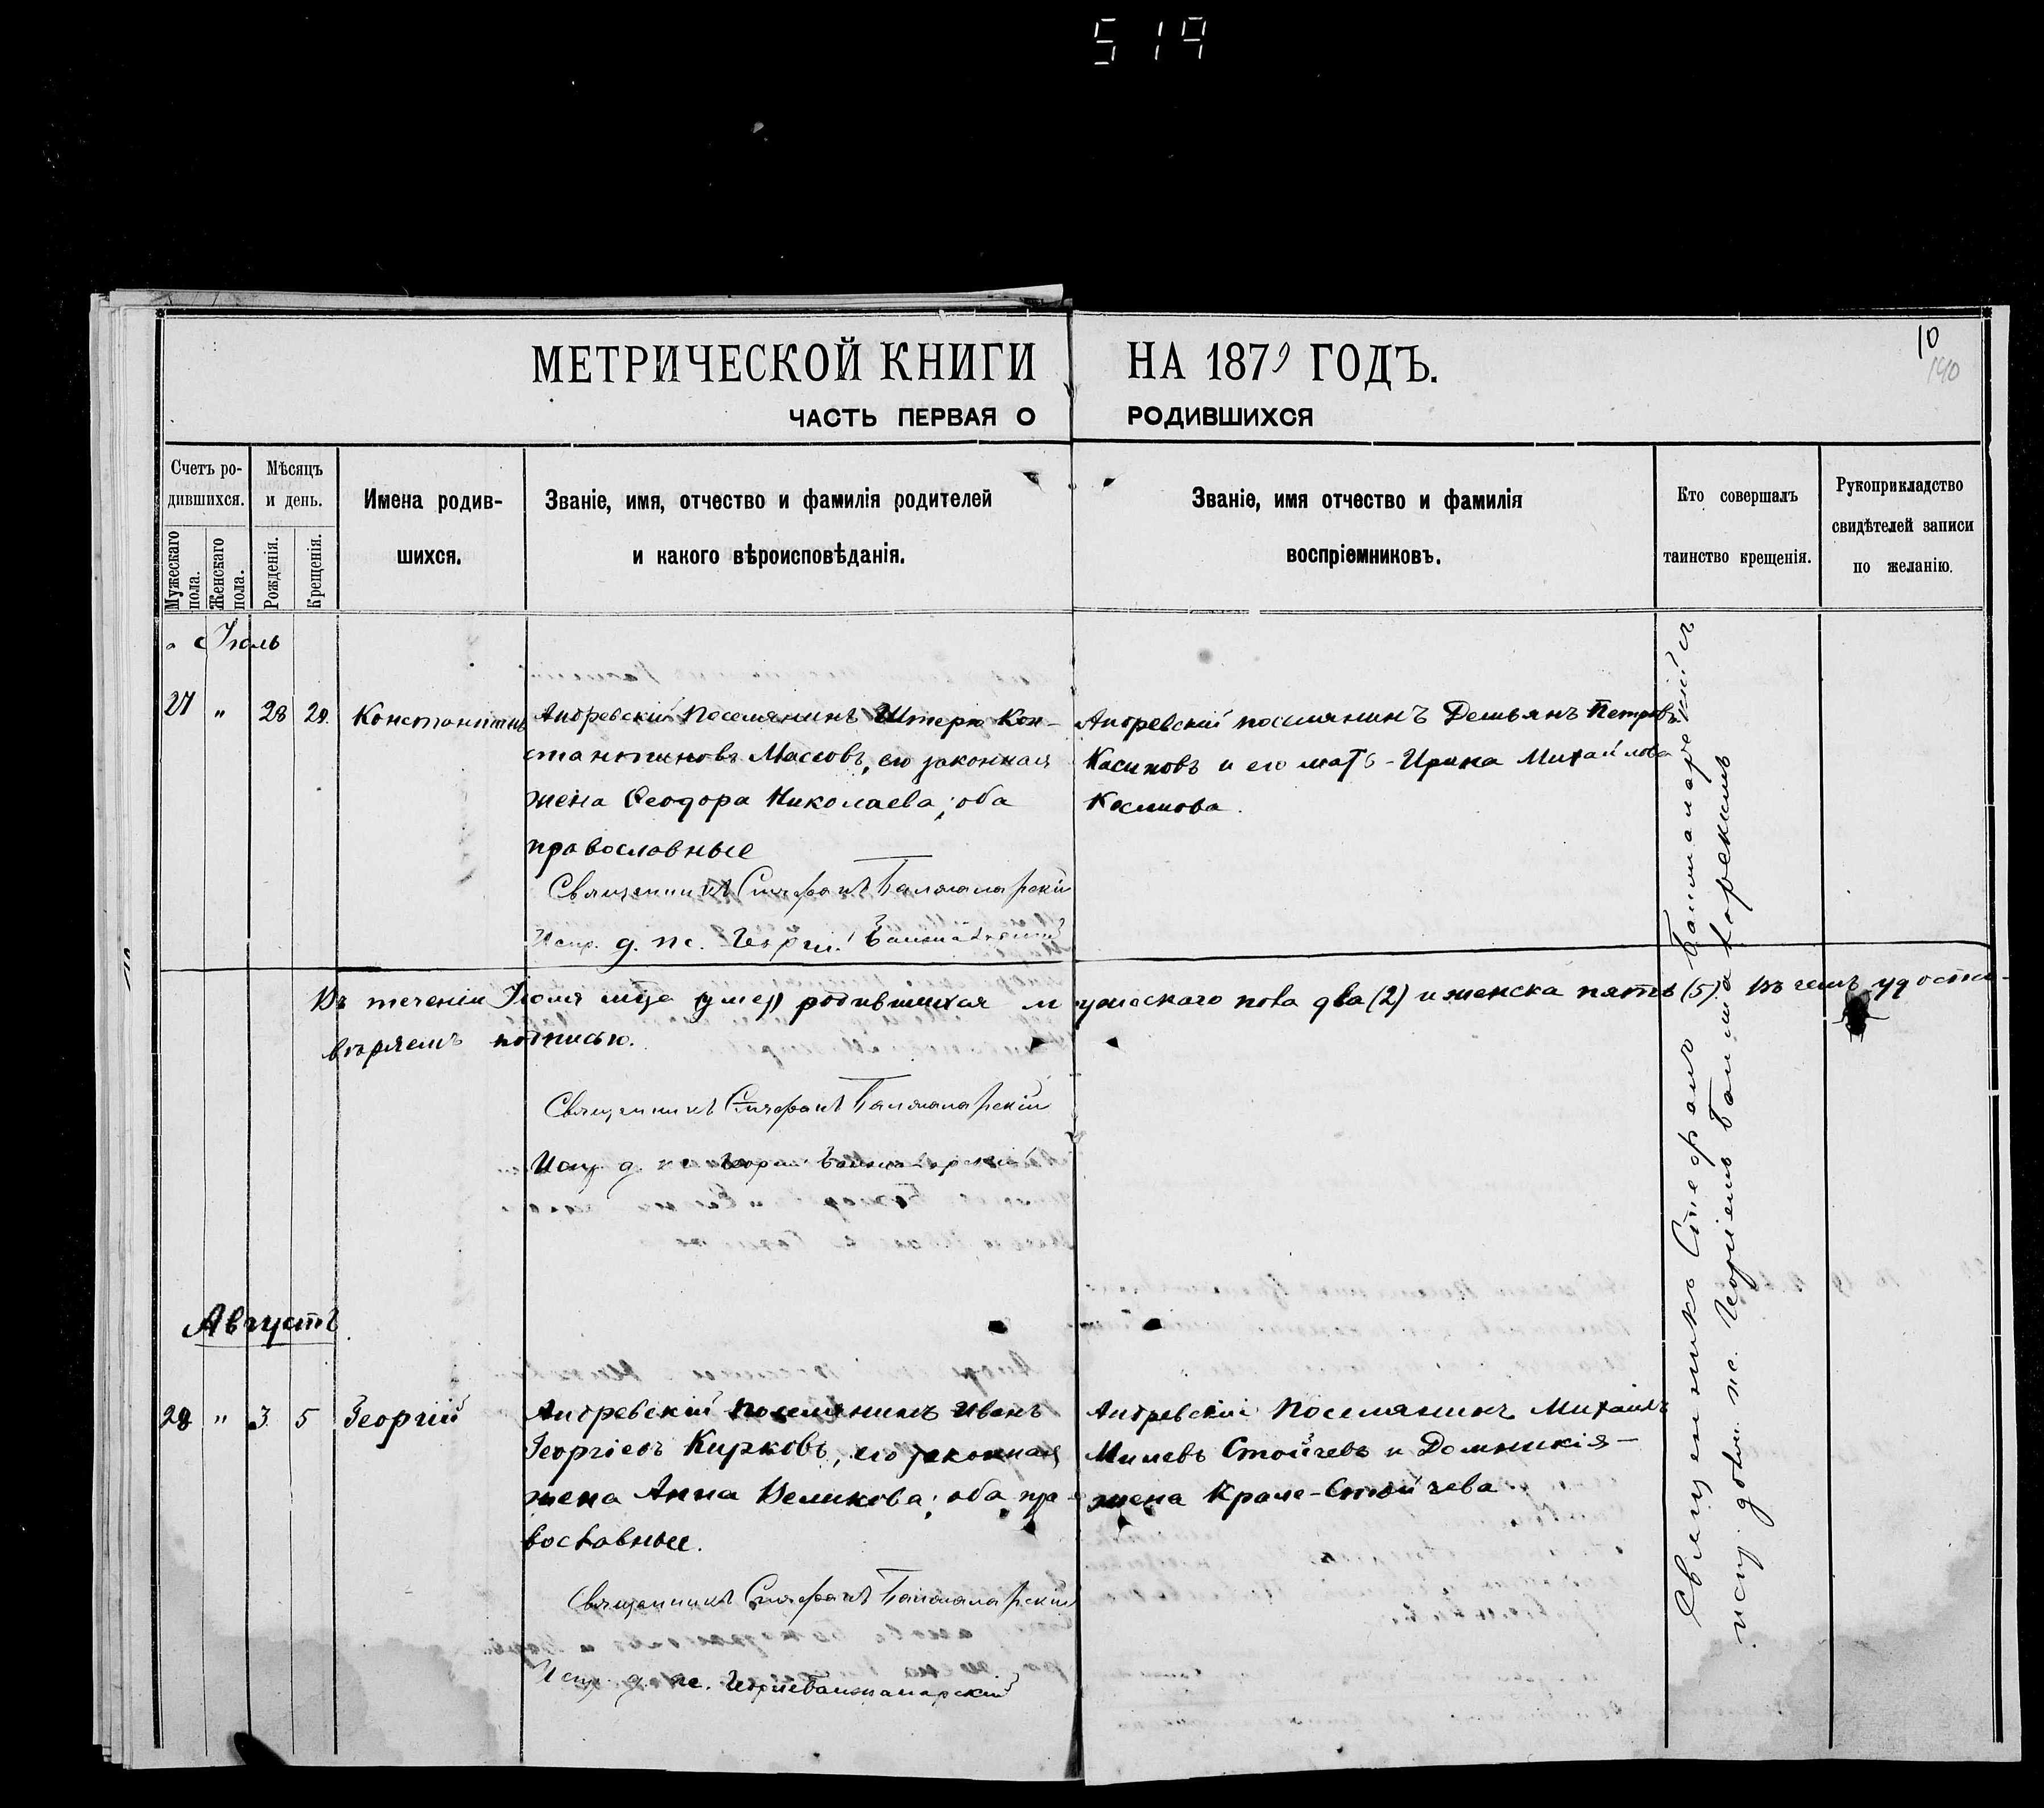 519
МЕТРИЧЕСКОЙ КНИГИ НА 1879 ГОДЪ.
10
140
ЧАСТЬ ПЕРВАЯ О РОДИВШИХСЯ
Счетъ ро-
дившихся.
Мужескаго пола.
Женскаго пола.
Мѣсяцъ
и день.
Рожденія.
Крещенія.
Имена родив-
шихся.
Званіе, имя, отчество и фамилія родителей
и какого вѣроисповѣданія.
Званіе, имя отчество и фамилія
воспріемниковъ.
Кто совершалъ
таинство крещенія.
Рукоприкладство
свидѣтелей записи
по желанію.
Іюль
27 " 28 29. Константинъ
Андревскій поселянинъ Штерю Кон-
стантиновъ Масловъ, его законная
жена Ѳеодора Николаева; оба
православные
Священникъ Стефанъ Баломаларскій
Испр. д. пс. Георгій
Андревскій поселянинъ Демьянъ Петровъ
Касиковъ и его мать - Ирина Михайлова
Касикова.
Въ теченіи Іюля мца родившихся мужескаго пола два (2) и женска пять (5). Въ чемъ удосто-
вѣряемъ подписью.
Священникъ Стефанъ
Испр. д. пс. Георгій
Августъ
28 " 3 5 Георгій
Андревскій поселянинъ Иванъ
Георгіевъ Кирковъ, его законная
жена Анна Великова; оба пра-
вославные.
Священникъ Стефанъ
Испр. д. пс. Георгій
Андревскій поселянинъ Михаилъ
Милевъ Стойчевъ и Домникія -
жена Крале-Стойчева
Священникъ Стефанъ
испр. долж. пс. Георгіемъ